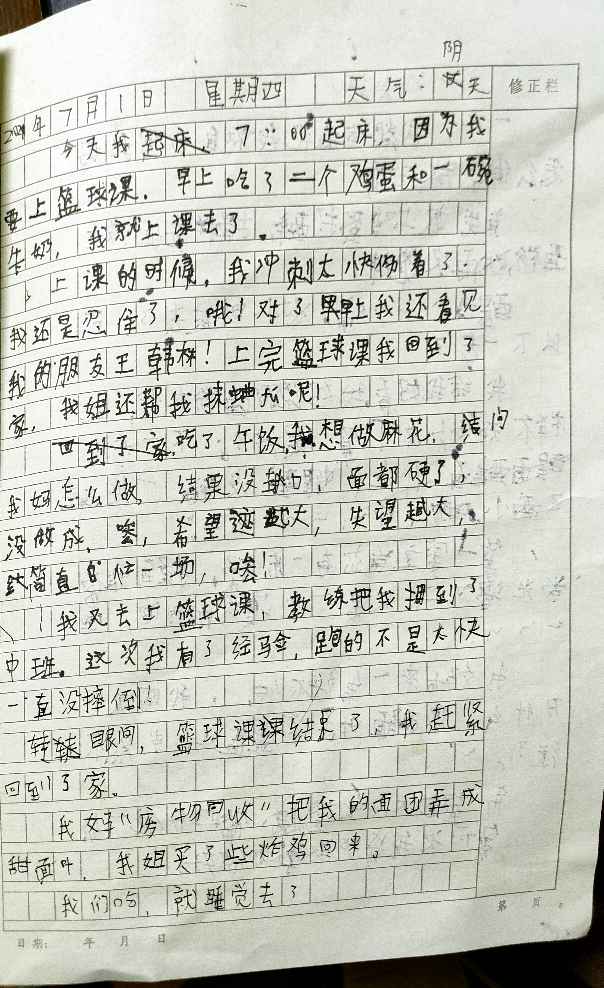 阴
2021年7月1日 星期四 天气：天 修正栏
今天我起床，7：00起床，因为我
要上篮球课。早上吃了二个鸡蛋和一碗
牛奶，我就上课去了。
上课的时候，我冲刺太快伤着了。
我还是忍住了，哦！对了早上我还看见
我的朋友王韩林！上完篮球课我回到了
家，我姐还帮我抹呢！
回到了家，吃了午饭，我想做麻花，结问
我妈怎么做，结果没，面都硬了，
没做成，唉，希望越大，失望越大，
简直白忙一场，唉！
我又去上篮球课，教练把我调到了
中班。这次我有了经验，跑的不是太快
一直没摔倒！
转眼间，篮球课课结束了，我赶紧
回到了家。
我妈“废物回收”把我的面团弄成
甜面叶，我姐买了些炸鸡回来。
我们吃，就睡觉去了
第 页
日期： 年 月 日